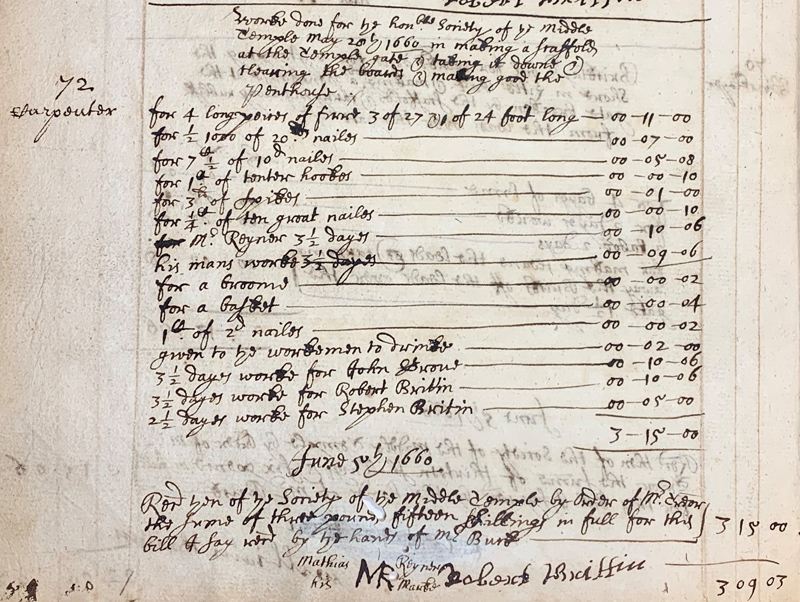 Worke done for ye honble Society of ye Middle
Temple May 28th 1660 in making a scaffold
at the Temple gate & taking it downe &
clearing the boards & making good the
Penthouse
72
Carpenter
for 4 long peices of firre 3 of 27 & 1 of 24 foot long — 00-11-00
for ½ 1000 of 20d nailes — 00-07-00
for 7c ½ of 10d nailes — 00-05-08
for 1c of tenter hookes — 00-00-10
for 3 of spikes — 00-01-00
for ¼c of ten groat nailes — 00-00-10
for Mr Reyner 3½ dayes — 00-10-06
his mans worke 3½ dayes — 00-09-06
for a broome — 00-00-02
for a basket — 00-00-04
1c of 2d nailes — 00-00-02
given to the workemen to drinke — 00-02-00
3½ dayes worke for John Grove — 00-10-06
3½ dayes worke for Robert Brittin — 00-10-06
2½ dayes worke for Stephen Britin — 00-05-00
3-15-00
June 5th 1660
Recd then of ye Society of ye Middle Temple by order of Mr Trear
the sume of three pounds fifteen shillings in full for this
bill I say recd by the hands of Mr Buck
3 15 00
Mathias Reyners
his MR Marke Robert Brittin
3 09 03